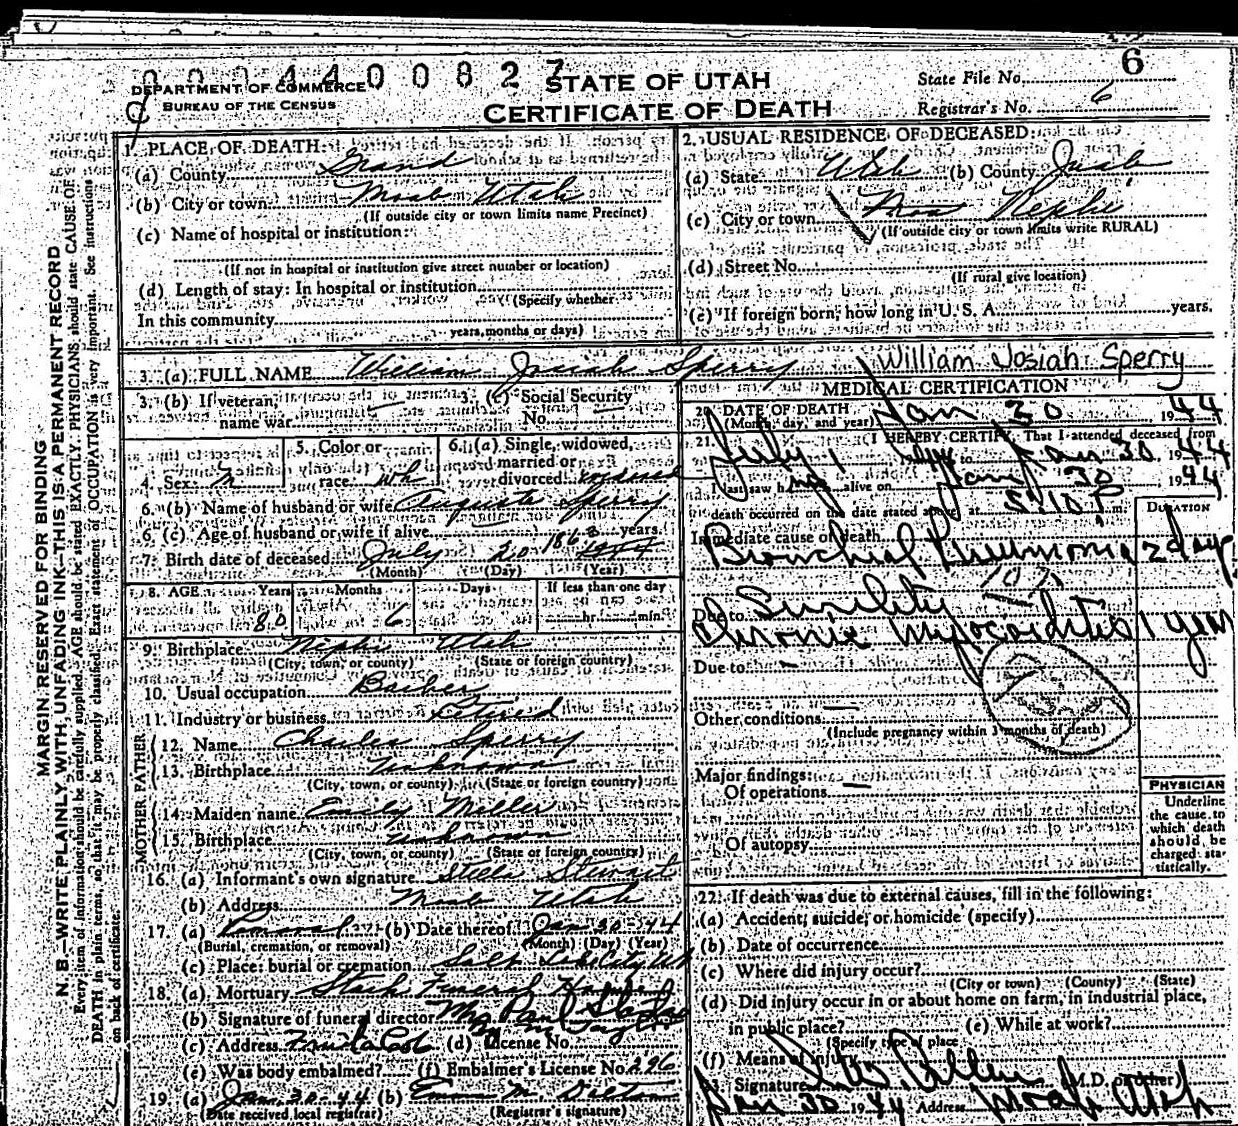 0 0 0 4 4 0 0 8 2 7
DEPARTMENT OF COMMERCE
BUREAU OF THE CENSUS
STATE OF UTAH
CERTIFICATE OF DEATH
State File No. 6
Registrar's No. 6
MARGIN RESERVED FOR BINDING
N. B.—WRITE PLAINLY, WITH UNFADING INK—THIS IS A PERMANENT RECORD
Every item of information should be carefully supplied. AGE should be stated EXACTLY. PHYSICIANS should state CAUSE OF
DEATH in plain terms, so that it may be properly classified. Exact statement of OCCUPATION is very important. See instructions
on back of certificate.
1. PLACE OF DEATH:
(a) County Grand
(b) City or town Moab Utah
(If outside city or town limits name Precinct)
(c) Name of hospital or institution:
(If not in hospital or institution give street number or location)
(d) Length of stay: In hospital or institution
(Specify whether
In this community
years, months or days)
2. USUAL RESIDENCE OF DECEASED:
(a) State Utah (b) County Juab
(c) City or town Nephi
(If outside city or town limits write RURAL)
(d) Street No.
(If rural give location)
(e) If foreign born, how long in U. S. A. years.
3. (a) FULL NAME William Josiah Sperry
William Josiah Sperry
3. (b) If veteran,
name war
3. (c) Social Security
No.
4. Sex M
5. Color or
race Wh
6. (a) Single, widowed,
married or
divorced
6. (b) Name of husband or wife Auguste Sperry
6. (c) Age of husband or wife if alive years.
7. Birth date of deceased July 20 1863
(Month) (Day) (Year)
8. AGE Years 80 Months 6 Days
If less than one day
hr. min.
9. Birthplace Nephi Utah
(City, town, or county) (State or foreign country)
10. Usual occupation Barber
11. Industry or business Retired
FATHER
12. Name Charles Sperry
13. Birthplace unknown
(City, town, or county) (State or foreign country)
MOTHER
14. Maiden name Emily Miller
15. Birthplace unknown
(City, town, or county) (State or foreign country)
16. (a) Informant's own signature Stella Stewart
(b) Address Moab Utah
17. (a) Removal (b) Date thereof Jan 30 44
(Burial, cremation, or removal) (Month) (Day) (Year)
(c) Place: burial or cremation Salt Lake City
18. (a) Mortuary Funeral Home
(b) Signature of funeral director
(c) Address (d) License No.
(e) Was body embalmed? (f) Embalmer's License No. 296
19. (a) Jan 30 44 (b)
(Date received local registrar) (Registrar's signature)
MEDICAL CERTIFICATION
20. DATE OF DEATH Jan 30 1944
(Month, day, and year)
21. I HEREBY CERTIFY, That I attended deceased from
July 1 to Jan 30 1944
last saw him alive on Jan 30 1944
death occurred on the date stated above, at 5:10 P m.
DURATION
Immediate cause of death
Bronchial Pneumonia 2 days
107
Due to Senility
Chronic Myocarditis 1 year
Due to
Other conditions
(Include pregnancy within 3 months of death)
Major findings:
Of operations
Of autopsy
PHYSICIAN
Underline
the cause to
which death
should be
charged sta-
tistically.
22. If death was due to external causes, fill in the following:
(a) Accident, suicide, or homicide (specify)
(b) Date of occurrence
(c) Where did injury occur?
(City or town) (County) (State)
(d) Did injury occur in or about home on farm, in industrial place,
in public place? (e) While at work?
(Specify type of place
(f) Means of injury
23. Signature Allen (M.D. or other)
Jan 30 1944 Address Moab Utah